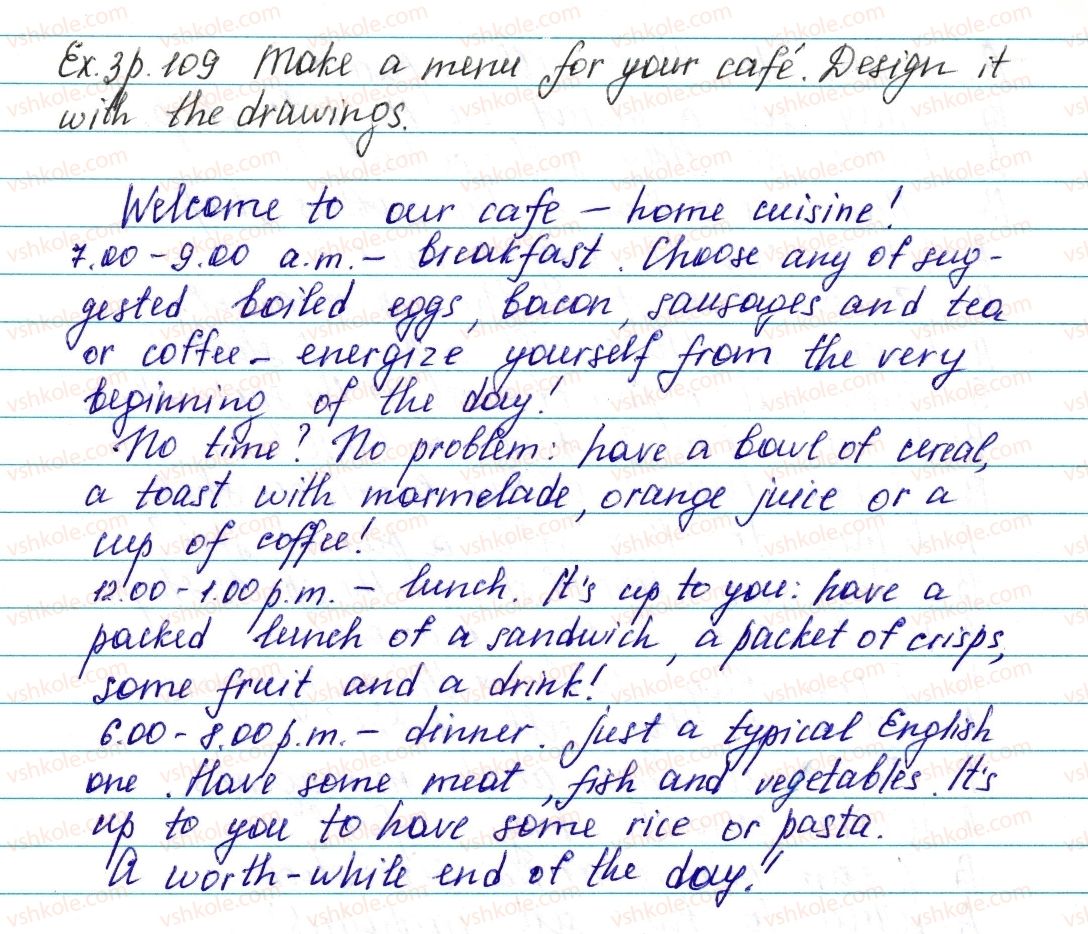 Ex. 3 p. 109 Make a menu for your café. Design it
with the drawings.
Welcome to our cafe – home cuisine!
7.00 – 9.00 a.m. – breakfast. Choose any of sug-
gested boiled eggs, bacon, sausages and tea
or coffee – energize yourself from the very
beginning of the day!
No time? No problem: have a bowl of cereal,
a toast with marmelade, orange juice or a
cup of coffee!
12.00 – 1.00 p.m. – lunch. It's up to you: have a
packed lunch of a sandwich, a packet of crisps,
some fruit and a drink!
6.00 – 8.00 p.m. – dinner. Just a typical English
one. Have some meat, fish and vegetables. It's
up to you to have some rice or pasta.
A worth-while end of the day!
vshkole.com